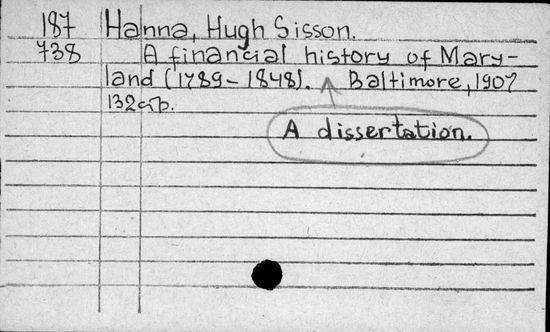 187 Hanna, Hugh Sisson.
738 A financial history of Mary-
land (1789-1848). Baltimore, 1907
132 p.
A dissertation.